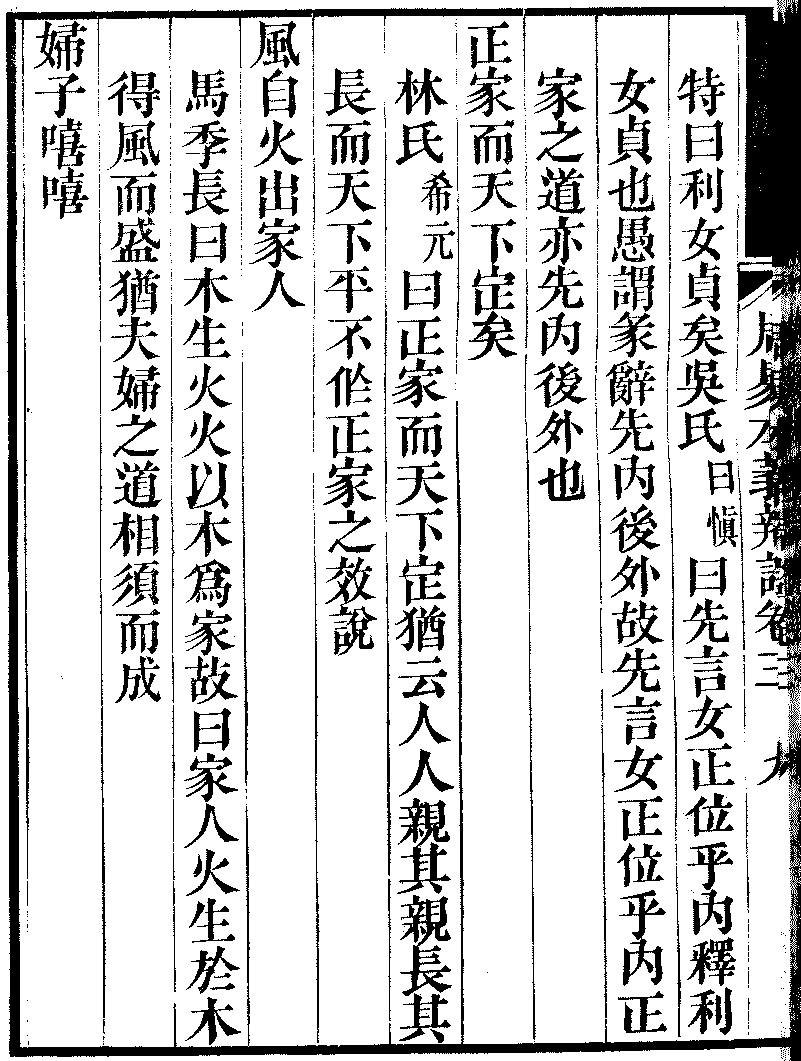 周易本義辨證卷三 九
特曰利女貞矣吳氏曰愼曰先言女正位乎內釋利
女貞也愚謂彖辭先內後外故先言女正位乎內正
家之道亦先內後外也
正家而天下定矣
林氏希元曰正家而天下定猶云人人親其親長其
長而天下平不作正家之效說
風自火出家人
馬季長曰木生火火以木爲家故曰家人火生於木
得風而盛猶夫婦之道相須而成
婦子嘻嘻